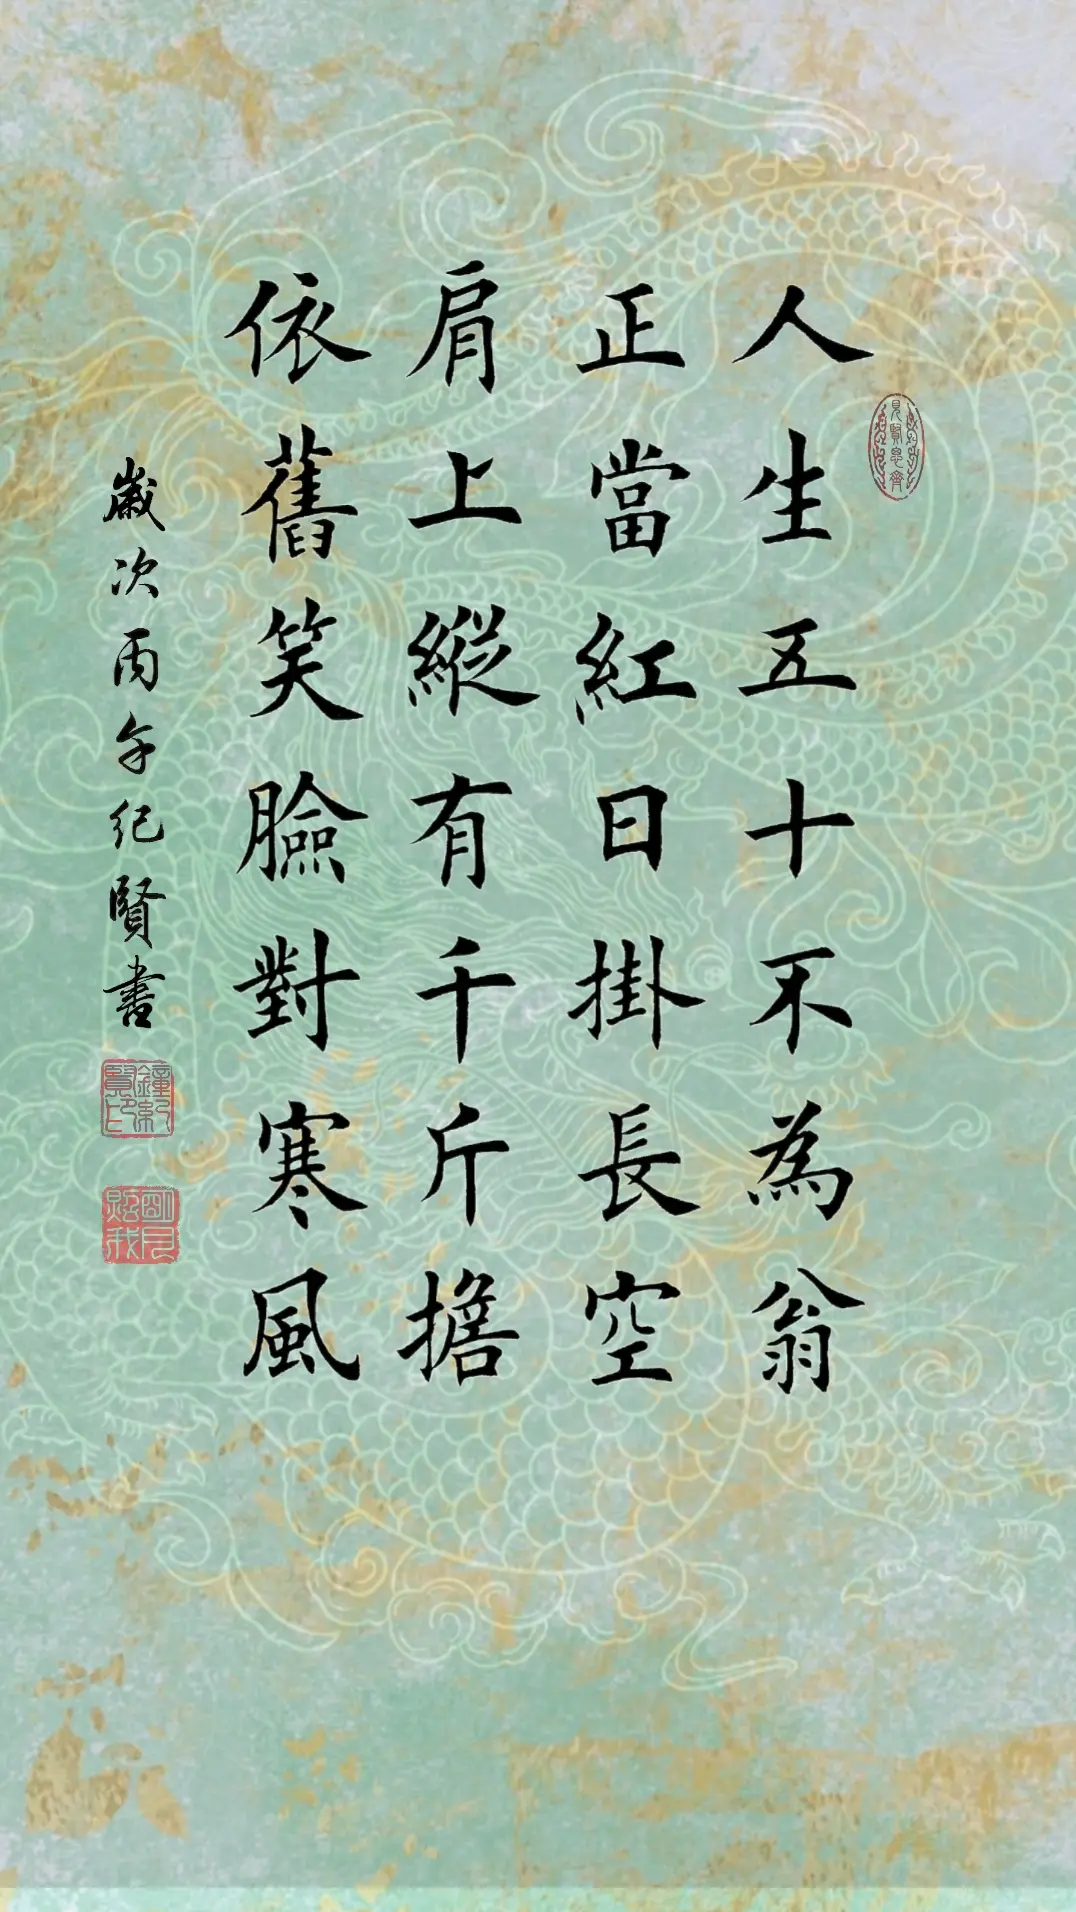 人生五十不為翁
正當紅日掛長空
肩上縱有千斤擔
依舊笑臉對寒風
歲次丙午紀賢書
見賢思齊
鐘紀賢印